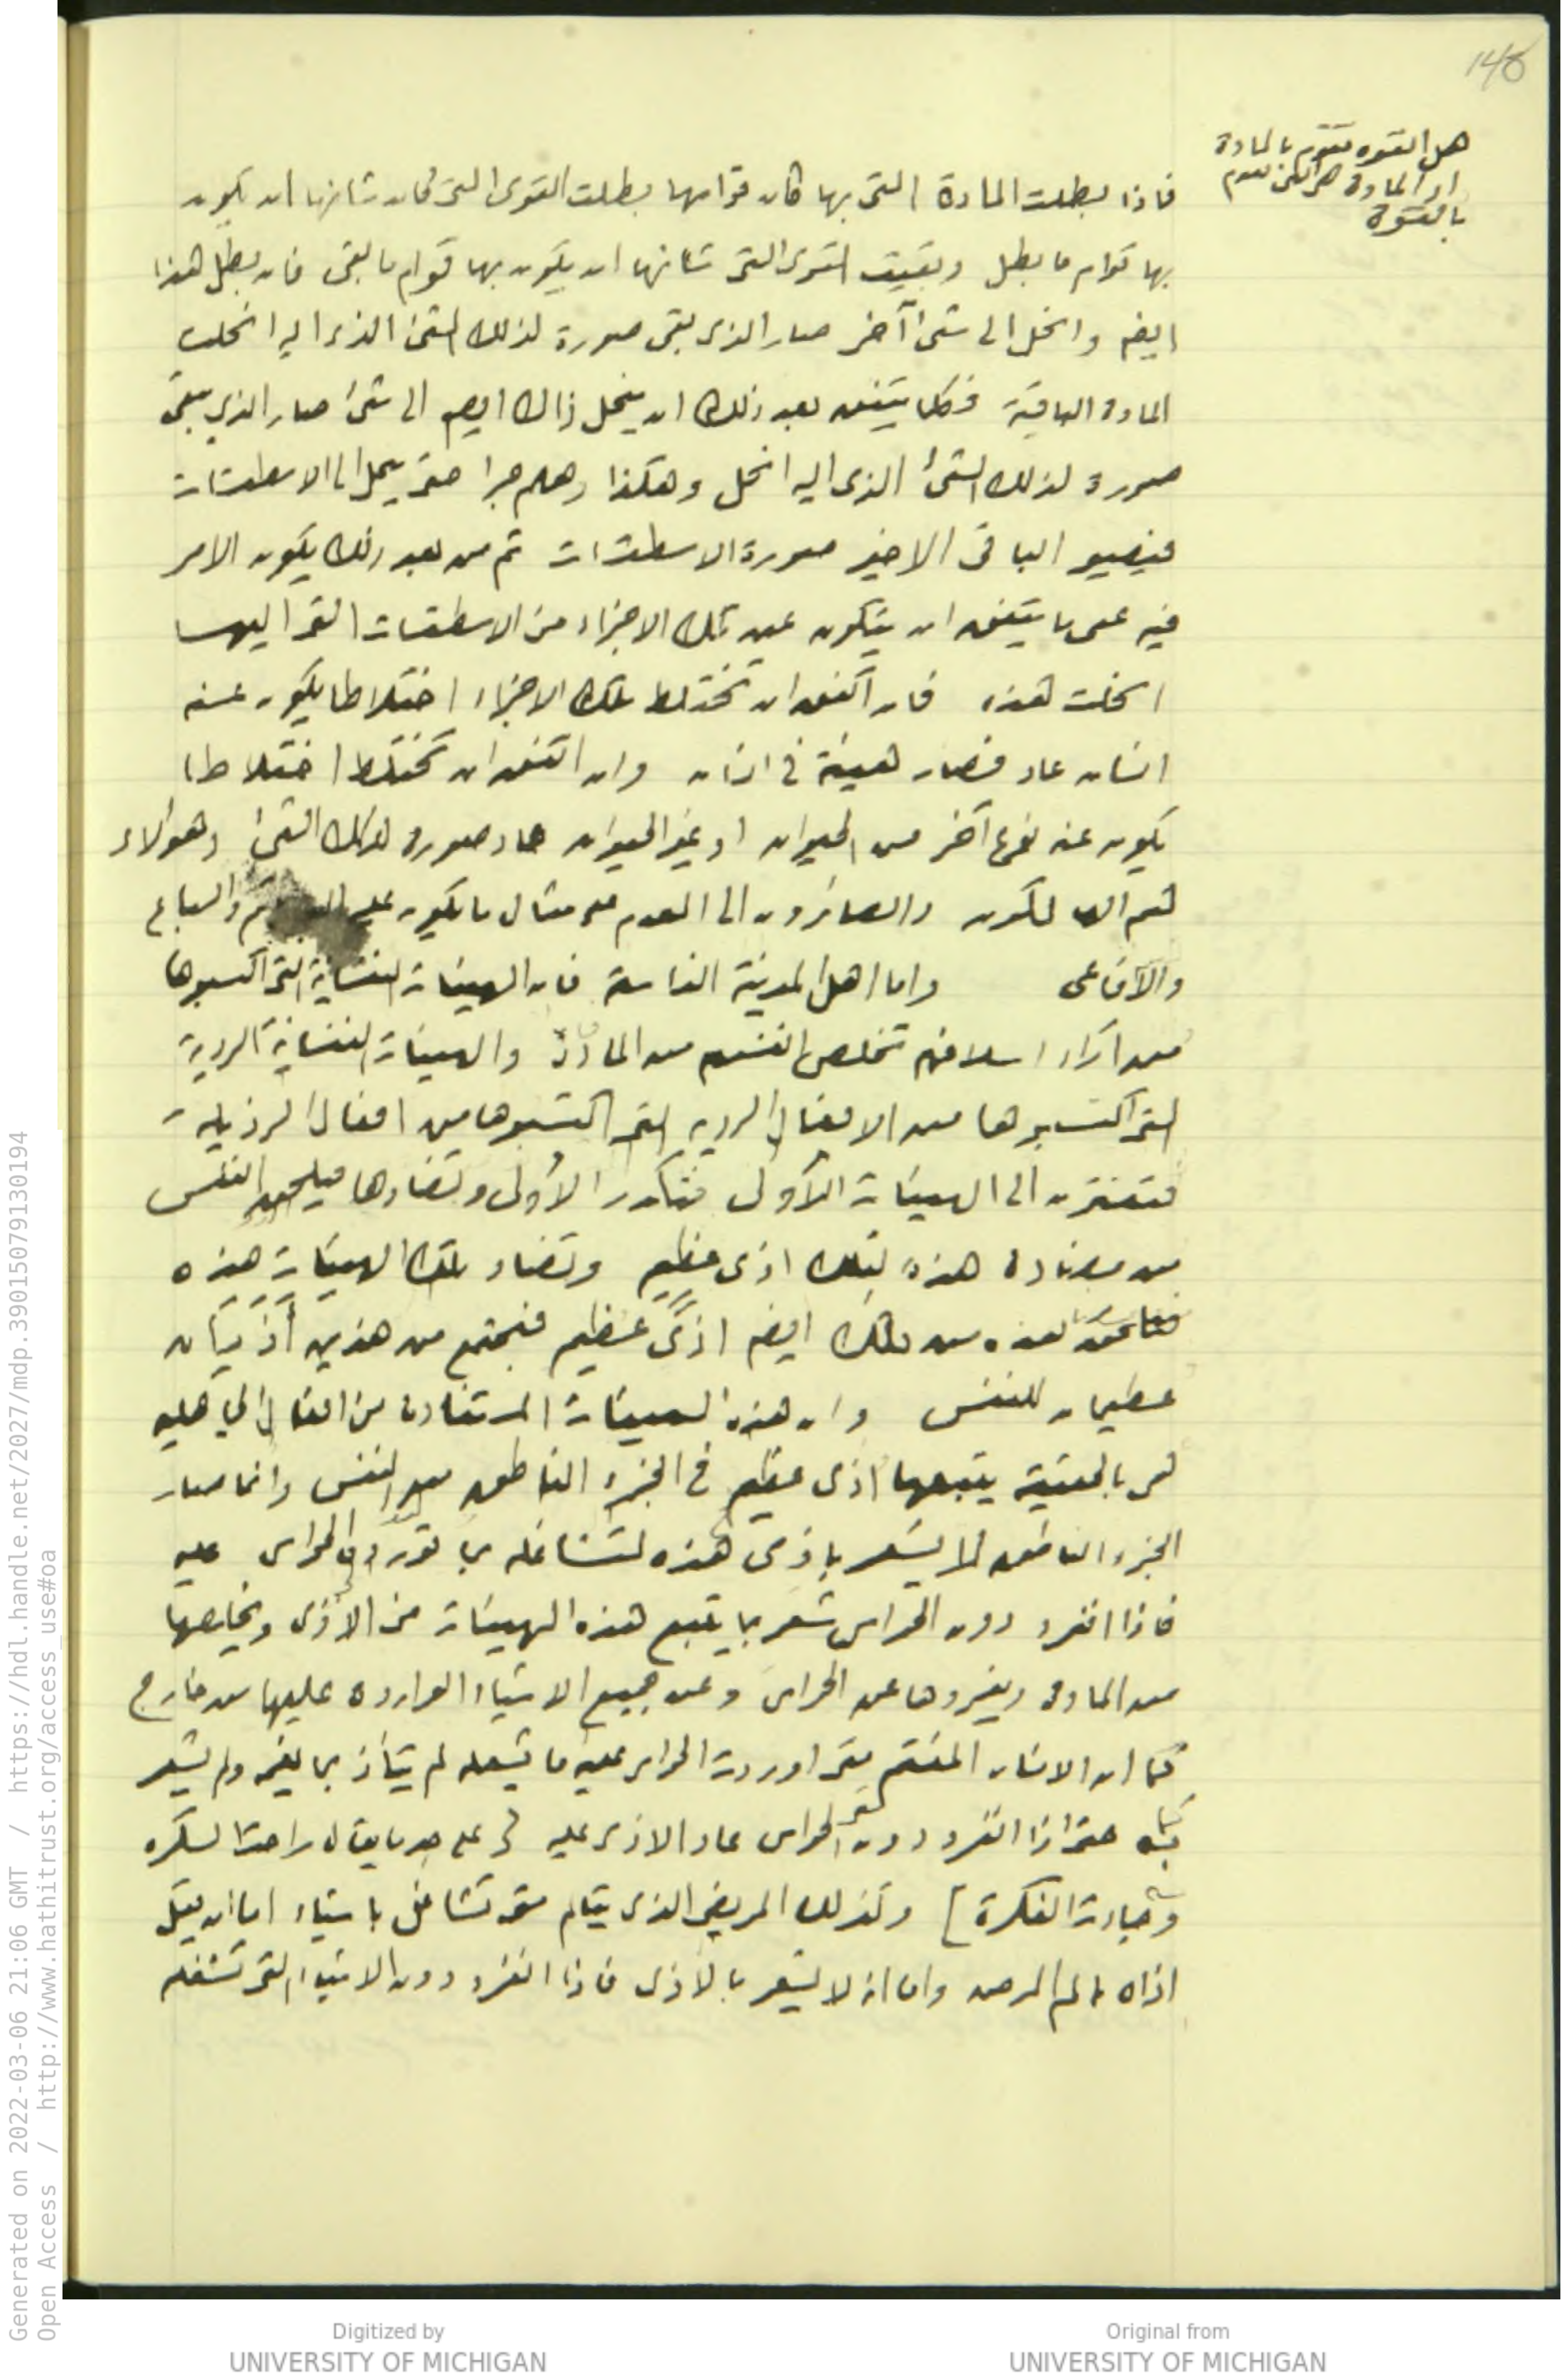 148
هل القوه تقوم بالمادة
او المادة هي التي تقوم
بالقوة
فاذا بطلت المادة التى بها كان قوامها بطلت القوى التى كان شانها ان يكون
بها قوام ما بطل وبقيت القوى التى شانها ان يكون بها قوام ما بقى فان بطل هذا
ايضا وانحل الى شئ آخر صار الذى بقى صورة لذلك الشئ الذى اليه انحلت
المادة الباقية فكلما يتفق بعد ذلك ان ينحل ذاك ايضا الى شئ صار الذى يبقى
صورة لذلك الشئ الذى اليه انحل وهكذا وهلم جرا حتى ينحل الى الاسطقسات
فيصير الباقى الاخير صورة الاسطقسات ثم من بعد ذلك يكون الامر
فيه على ما يتفق ان يتكون عن تلك الاجزاء من الاسطقسات التى اليها
انحلت هذه فان اتفق ان تختلط تلك الاجزاء اختلاطا يكون عنه
انسان عاد فصار هيئة فى انسان وان اتفق ان تختلط اختلاطا
يكون عنه نوع آخر من الحيوان او غير الحيوان عاد صورة لذلك الشئ وهؤلاء
هم الهالكون والصائرون الى العدم على مثال ما يكون عليه والسباع
والأفاعى واما اهل المدينة الفاسقة فان الهيئات النفسانية التى اكتسبوها
من آراء اسلافهم تخلص انفسهم من المادة والهيئات النفسانية الردية
التى اكتسبوها من الافعال الرديه التى اكتسبوها من افعال الرذيلة
فتقترن الى الهيئات الأولى فتكدر الأولى وتضادها فيلحق النفس
من مضادة هذه لتلك اذى عظيم وتضاد تلك الهيئات هذه
فيلحق هذه من تلك ايضا اذىً عظيم فيجتمع من هذين أذيان
عظيمان للنفس وان هذه الهيئات المستفادة من افعال الجاهليه
هى بالحقيقة يتبعها اذى عظيم فى الجزء الناطق من النفس وانما صار
الجزء الناطق لا يشعر باذى هذه لتشاغله بما تورد الحواس عليه
فاذا انفرد دون الحواس شعر بما يتبع هذه الهيئات من الأذى ويخلصها
من المادة ويفردها عن الحواس وعن جميع الاشياء الوارده عليها من خارج
كما ان الانسان المغتم متى اوردت الحواس عليه ما يشغله لم يتأذ بما يغمه ولم يشعر
به حتى اذا انفرد دون الحواس عاد الاذى عليه على حد ما يقال راحت السكره
وجاءت الفكرة] وكذلك المريض الذى يتالم متى تشاغل باشياء اما ان يقل
اذاه بالم المرض واما ان لا يشعر بالأذى فاذا انفرد دون الاشياء التى تشغله
Generated on 2022-03-06 21:06 GMT / https://hdl.handle.net/2027/mdp.39015079130194
Open Access / http://www.hathitrust.org/access_use#oa
Digitized by
UNIVERSITY OF MICHIGAN
Original from
UNIVERSITY OF MICHIGAN